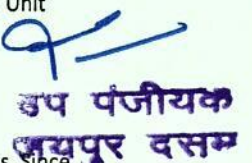 Unit
उप पंजीयक
जयपुर दसम
s Since